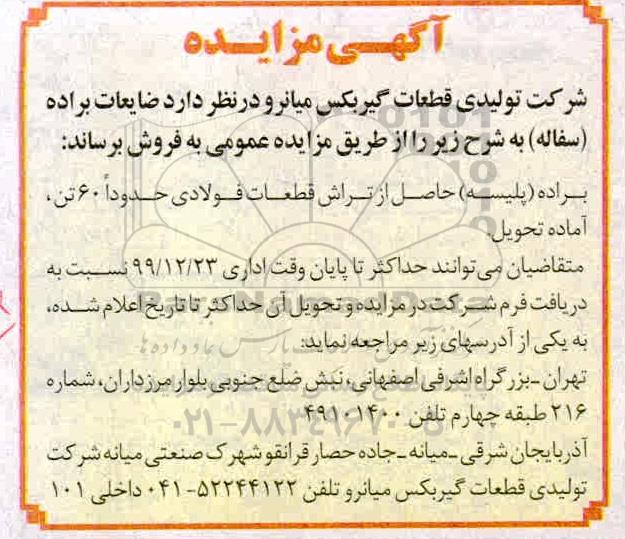 آگهی مزایده
شرکت تولیدی قطعات گیربکس میانرو در نظر دارد ضایعات براده
(سفاله) به شرح زیر را از طریق مزایده عمومی به فروش برساند:
براده (پلیسه) حاصل از تراش قطعات فولادی حدوداً ۶۰ تن،
آماده تحویل.
متقاضیان می‌توانند حداکثر تا پایان وقت اداری ۹۹/۱۲/۲۳ نسبت به
دریافت فرم شرکت در مزایده و تحویل آن حداکثر تا تاریخ اعلام شده،
به یکی از آدرسهای زیر مراجعه نماید:
تهران ـ بزرگراه اشرفی اصفهانی، نبش ضلع جنوبی بلوار مرزداران، شماره
۲۱۶ طبقه چهارم تلفن ۴۹۱۰۱۴۰۰
۰۲۱-۸۸۳۴۹۶۷۰
آذربایجان شرقی ـ میانه ـ جاده حصار قرانقو شهرک صنعتی میانه شرکت
تولیدی قطعات گیربکس میانرو تلفن ۵۲۲۴۴۱۲۲-۰۴۱ داخلی ۱۰۱